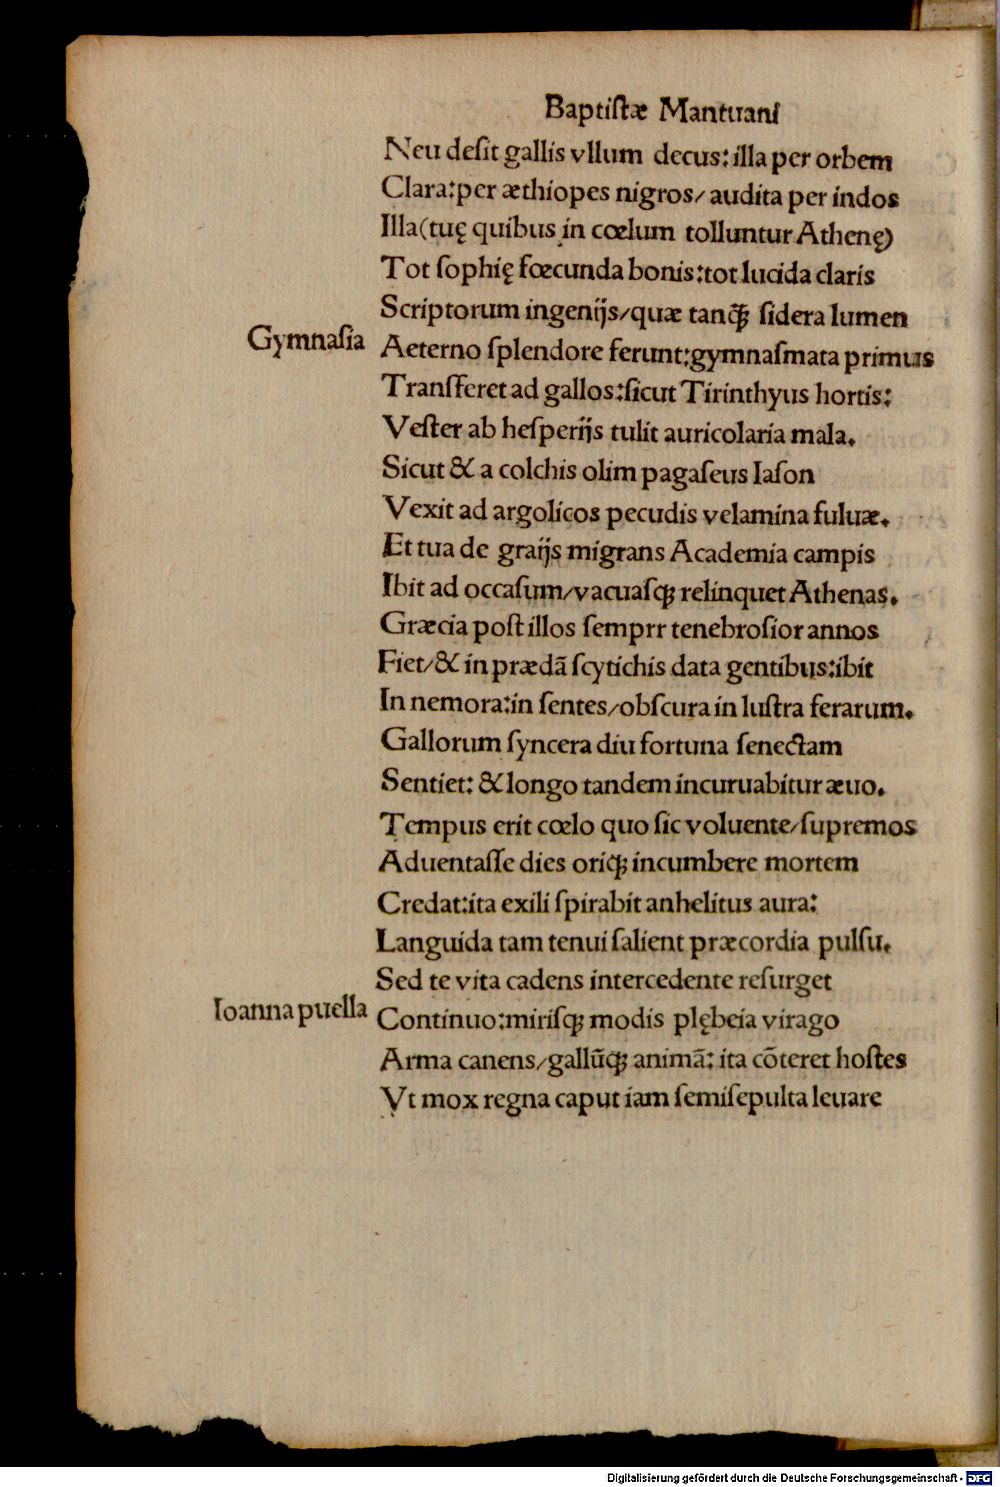 Baptiſtæ Mantuani
Neu deſit gallis vllum decus: illa per orbem
Clara: per æthiopes nigros/ audita per indos
Illa (tuę quibus in cœlum tolluntur Athenę)
Tot ſophię fœcunda bonis: tot lucida claris
Scriptorum ingenijs/ quæ tanꝙ̃ ſidera lumen
Gymnaſia
Aeterno ſplendore ferunt: gymnaſmata primus
Tranſferet ad gallos: ſicut Tirinthyus hortis:
Veſter ab heſperijs tulit auricolaria mala.
Sicut & a colchis olim pagaſeus Iaſon
Vexit ad argolicos pecudis velamina fuluæ.
Et tua de graijs migrans Academia campis
Ibit ad occaſum/ vacuaſqꝫ relinquet Athenas.
Græcia poſt illos ſemprr tenebroſior annos
Fiet/ & in prædā ſcytichis data gentibus: ibit
In nemora: in ſentes/ obſcura in luſtra ferarum.
Gallorum ſyncera diu fortuna ſenectam
Sentiet: & longo tandem incuruabitur æuo.
Tempus erit cœlo quo ſic voluente/ ſupremos
Aduentaſſe dies oriqꝫ incumbere mortem
Credat: ita exili ſpirabit anhelitus aura:
Languida tam tenui ſalient præcordia pulſu.
Sed te vita cadens intercedente reſurget
Ioanna puella
Continuo: miriſqꝫ modis plębeia virago
Arma canens/ gallūqꝫ animā: ita cōteret hoſtes
Vt mox regna caput iam ſemiſepulta leuare
Digitalisierung gefördert durch die Deutsche Forschungsgemeinschaft - DFG